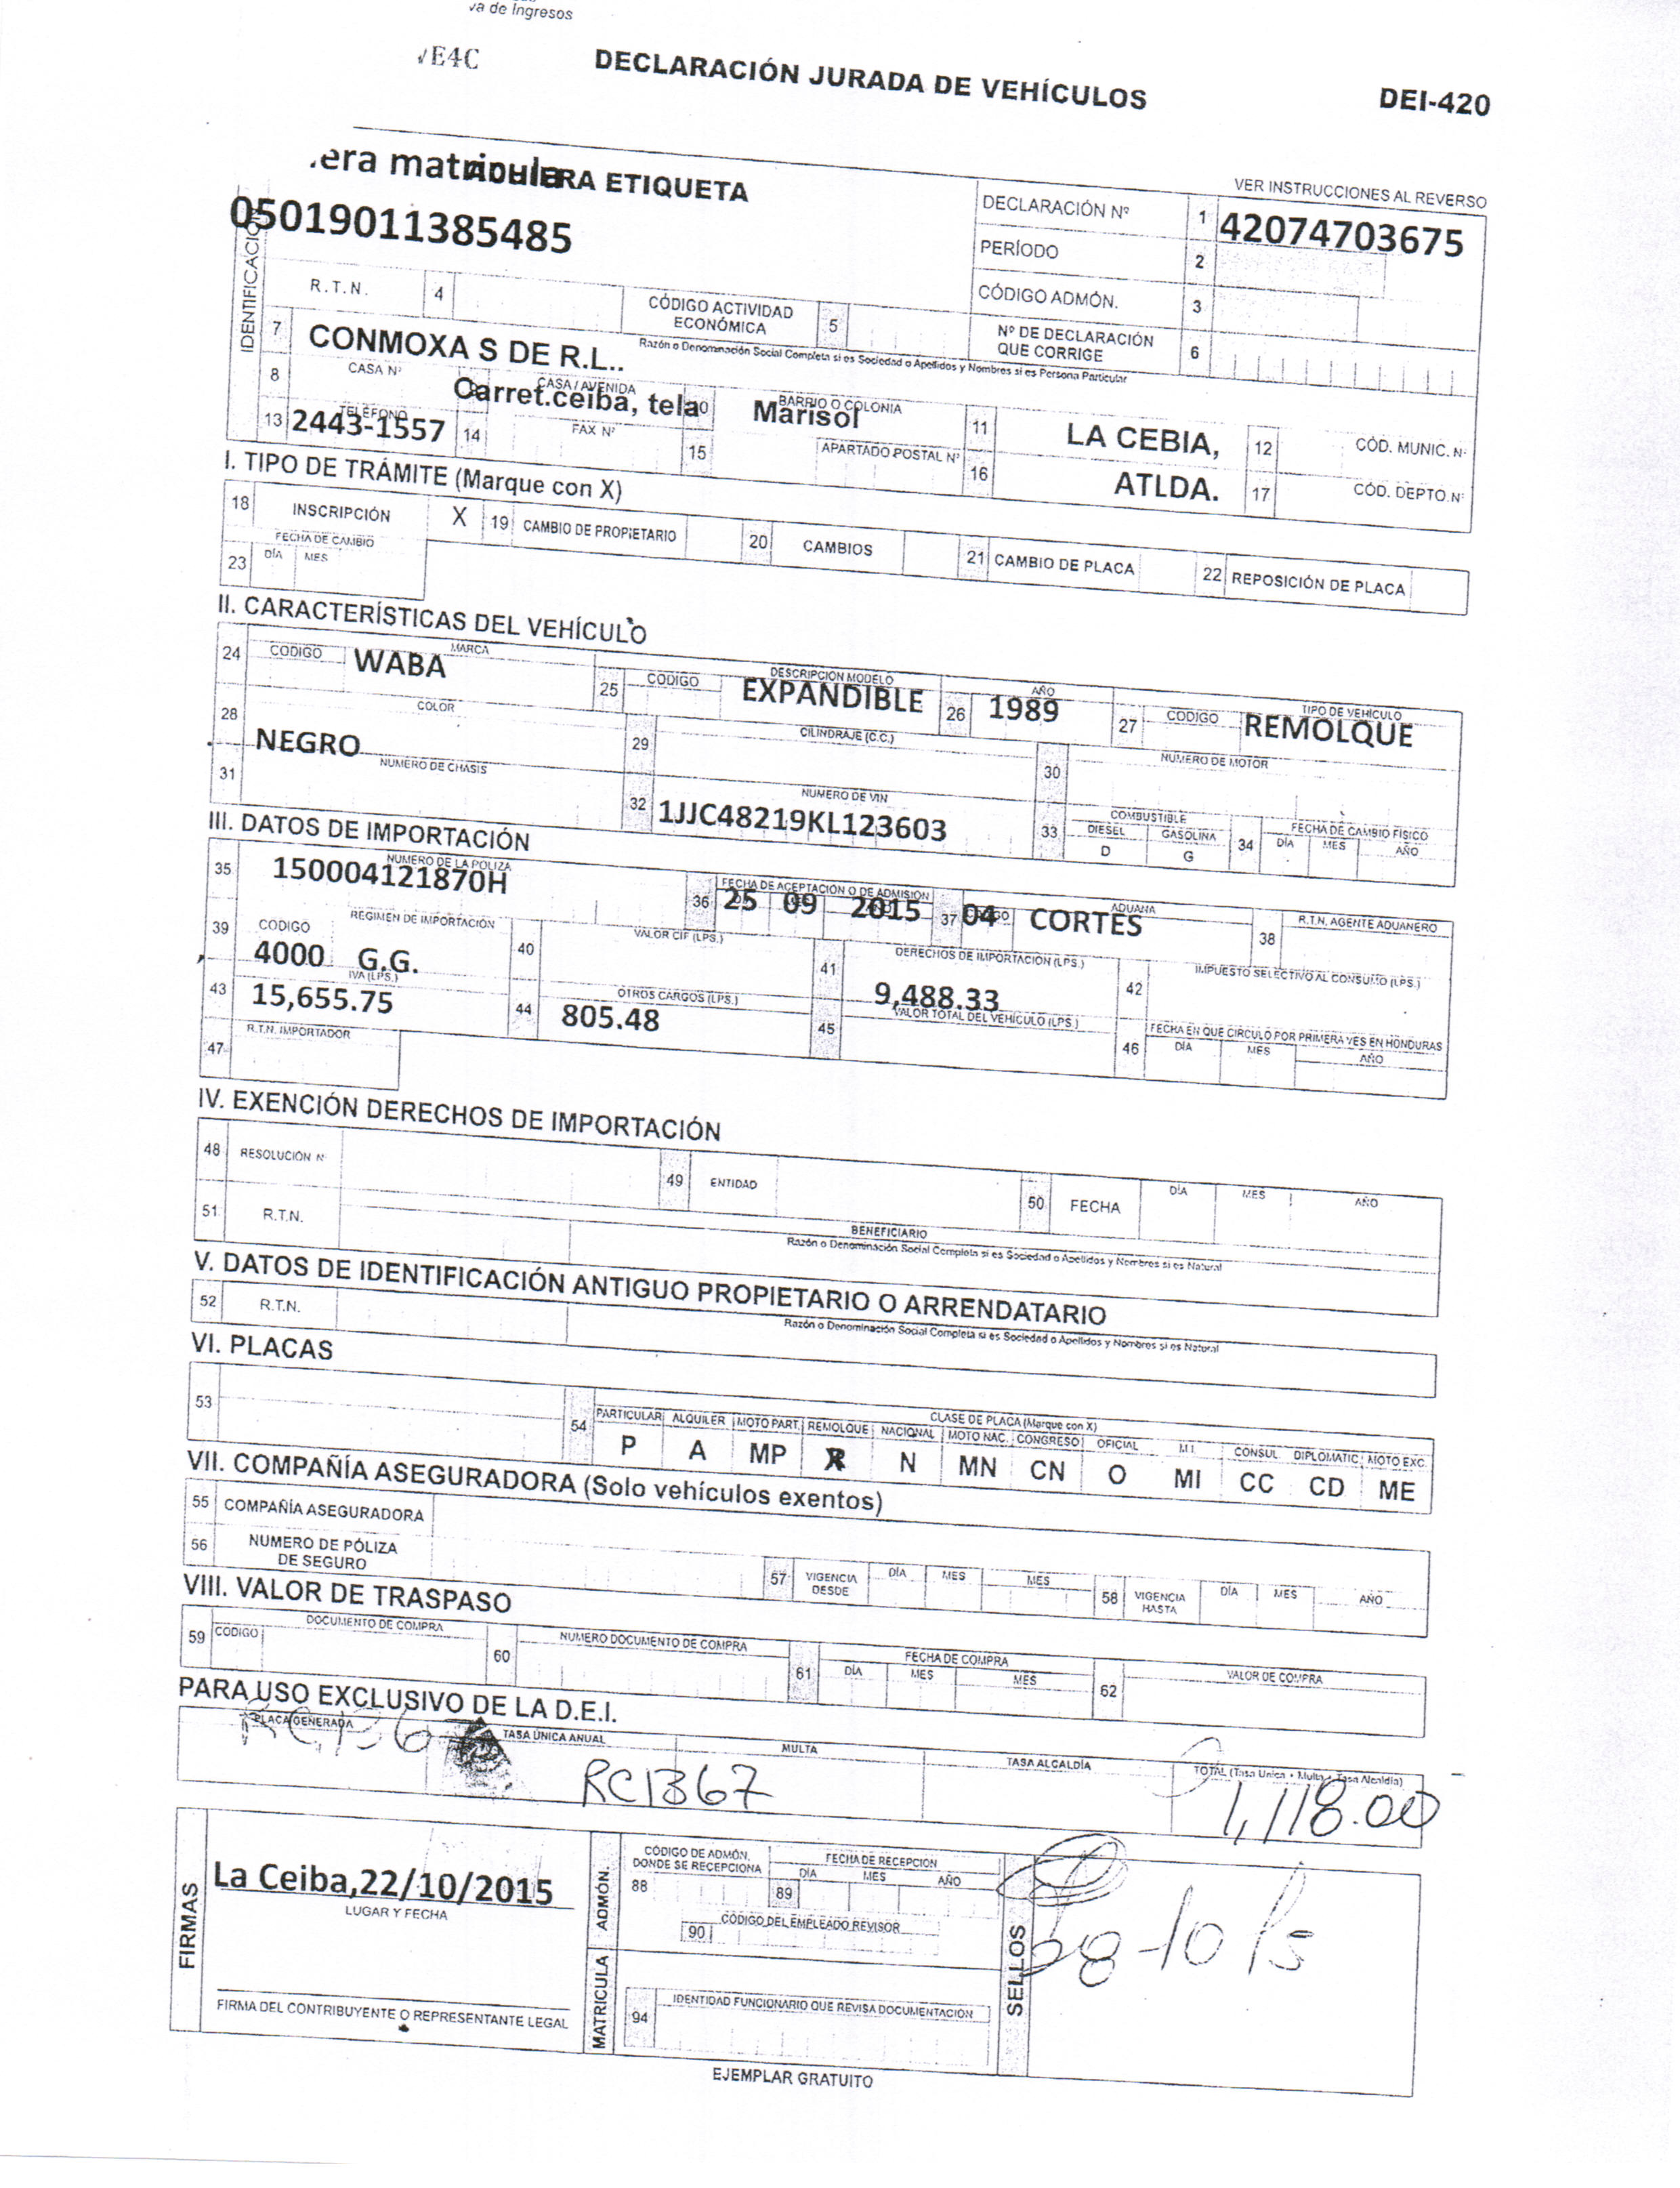 va de Ingresos
VE4C
DECLARACIÓN JURADA DE VEHÍCULOS
DEI-420
era matricula
ADHIERA ETIQUETA
VER INSTRUCCIONES AL REVERSO
IDENTIFICACIÓN
05019011385485
DECLARACIÓN Nº 1 42074703675
PERÍODO 2
R.T.N. 4 CÓDIGO ACTIVIDAD ECONÓMICA 5
CÓDIGO ADMÓN. 3
Nº DE DECLARACIÓN QUE CORRIGE 6
7 CONMOXA S DE R.L..
Razón o Denominación Social Completa si es Sociedad o Apellidos y Nombres si es Persona Particular
8 CASA Nº CASA / AVENIDA Carret.ceiba, tela BARRIO O COLONIA Marisol 11 LA CEBIA, 12 CÓD. MUNIC. Nº
13 TELÉFONO 2443-1557 14 FAX Nº 15 APARTADO POSTAL Nº 16 ATLDA. 17 CÓD. DEPTO. Nº
I. TIPO DE TRÁMITE (Marque con X)
18 INSCRIPCIÓN X 19 CAMBIO DE PROPIETARIO 20 CAMBIOS 21 CAMBIO DE PLACA 22 REPOSICIÓN DE PLACA
FECHA DE CAMBIO
23 DÍA MES
II. CARACTERÍSTICAS DEL VEHÍCULO
24 CODIGO MARCA WABA 25 CODIGO DESCRIPCION MODELO EXPANDIBLE 26 AÑO 1989 27 CODIGO TIPO DE VEHÍCULO REMOLQUE
28 COLOR NEGRO 29 CILINDRAJE (C.C.) 30 NUMERO DE MOTOR
31 NUMERO DE CHASIS 32 NUMERO DE VIN 1JJC48219KL123603 33 COMBUSTIBLE DIESEL D GASOLINA G 34 FECHA DE CAMBIO FÍSICO DÍA MES AÑO
III. DATOS DE IMPORTACIÓN
35 NUMERO DE LA POLIZA 150004121870H 36 FECHA DE ACEPTACIÓN O DE ADMISION 25 09 2015 37 04 ADUANA CORTES 38 R.T.N. AGENTE ADUANERO
39 CODIGO 4000 REGIMEN DE IMPORTACIÓN G.G. 40 VALOR CIF (LPS.) 41 DERECHOS DE IMPORTACIÓN (LPS.) 9,488.33 42 IMPUESTO SELECTIVO AL CONSUMO (LPS.)
43 IVA (LPS.) 15,655.75 44 OTROS CARGOS (LPS.) 805.48 45 VALOR TOTAL DEL VEHÍCULO (LPS.) 46 FECHA EN QUE CIRCULO POR PRIMERA VES EN HONDURAS DÍA MES AÑO
47 R.T.N. IMPORTADOR
IV. EXENCIÓN DERECHOS DE IMPORTACIÓN
48 RESOLUCIÓN Nº 49 ENTIDAD 50 FECHA DÍA MES AÑO
51 R.T.N. BENEFICIARIO
Razón o Denominación Social Completa si es Sociedad o Apellidos y Nombres si es Natural
V. DATOS DE IDENTIFICACIÓN ANTIGUO PROPIETARIO O ARRENDATARIO
52 R.T.N.
Razón o Denominación Social Completa si es Sociedad o Apellidos y Nombres si es Natural
VI. PLACAS
53 54 CLASE DE PLACA (Marque con X)
PARTICULAR ALQUILER MOTO PART. REMOLQUE NACIONAL MOTO NAC. CONGRESO OFICIAL M.I. CONSUL DIPLOMATIC. MOTO EXC.
P A MP R N MN CN O MI CC CD ME
VII. COMPAÑÍA ASEGURADORA (Solo vehículos exentos)
55 COMPAÑÍA ASEGURADORA
56 NUMERO DE PÓLIZA DE SEGURO 57 VIGENCIA DESDE DÍA MES MES 58 VIGENCIA HASTA DÍA MES AÑO
VIII. VALOR DE TRASPASO
59 CODIGO DOCUMENTO DE COMPRA 60 NUMERO DOCUMENTO DE COMPRA 61 FECHA DE COMPRA DÍA MES MES 62 VALOR DE COMPRA
PARA USO EXCLUSIVO DE LA D.E.I.
PLACA GENERADA TASA ÚNICA ANUAL MULTA TASA ALCALDÍA TOTAL (Tasa Unica + Multa + Tasa Alcaldía)
RC1367 1,118.00
FIRMAS
La Ceiba,22/10/2015
LUGAR Y FECHA
FIRMA DEL CONTRIBUYENTE O REPRESENTANTE LEGAL
MATRICULA ADMÓN.
CÓDIGO DE ADMÓN. DONDE SE RECEPCIONA 88
FECHA DE RECEPCION 89 DÍA MES AÑO
CÓDIGO DEL EMPLEADO REVISOR 90
IDENTIDAD FUNCIONARIO QUE REVISA DOCUMENTACION
94
SELLOS
EJEMPLAR GRATUITO